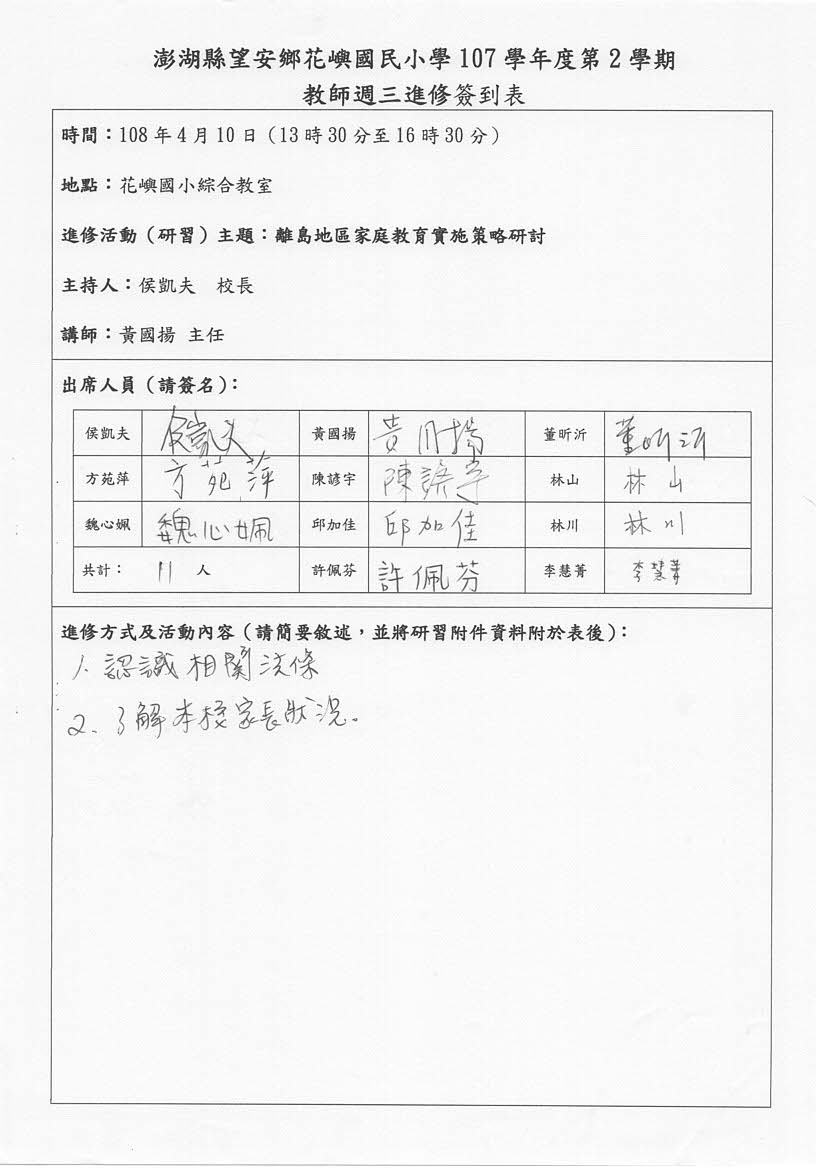 澎湖縣望安鄉花嶼國民小學 107 學年度第 2 學期
教師週三進修簽到表
時間：108 年 4 月 10 日（13 時 30 分至 16 時 30 分）
地點：花嶼國小綜合教室
進修活動（研習）主題：離島地區家庭教育實施策略研討
主持人：侯凱夫 校長
講師：黃國揚 主任
出席人員（請簽名）：
侯凱夫 侯凱夫 黃國揚 黃国揚 董昕沂 董昕沂
方苑萍 方苑萍 陳諺宇 陳諺宇 林山 林山
魏心姵 魏心姵 邱加佳 邱加佳 林川 林川
共計： 11 人 許佩芬 許佩芬 李慧菁 李慧菁
進修方式及活動內容（請簡要敘述，並將研習附件資料附於表後）：
1. 認識相關法條
2、了解本校家長狀況。